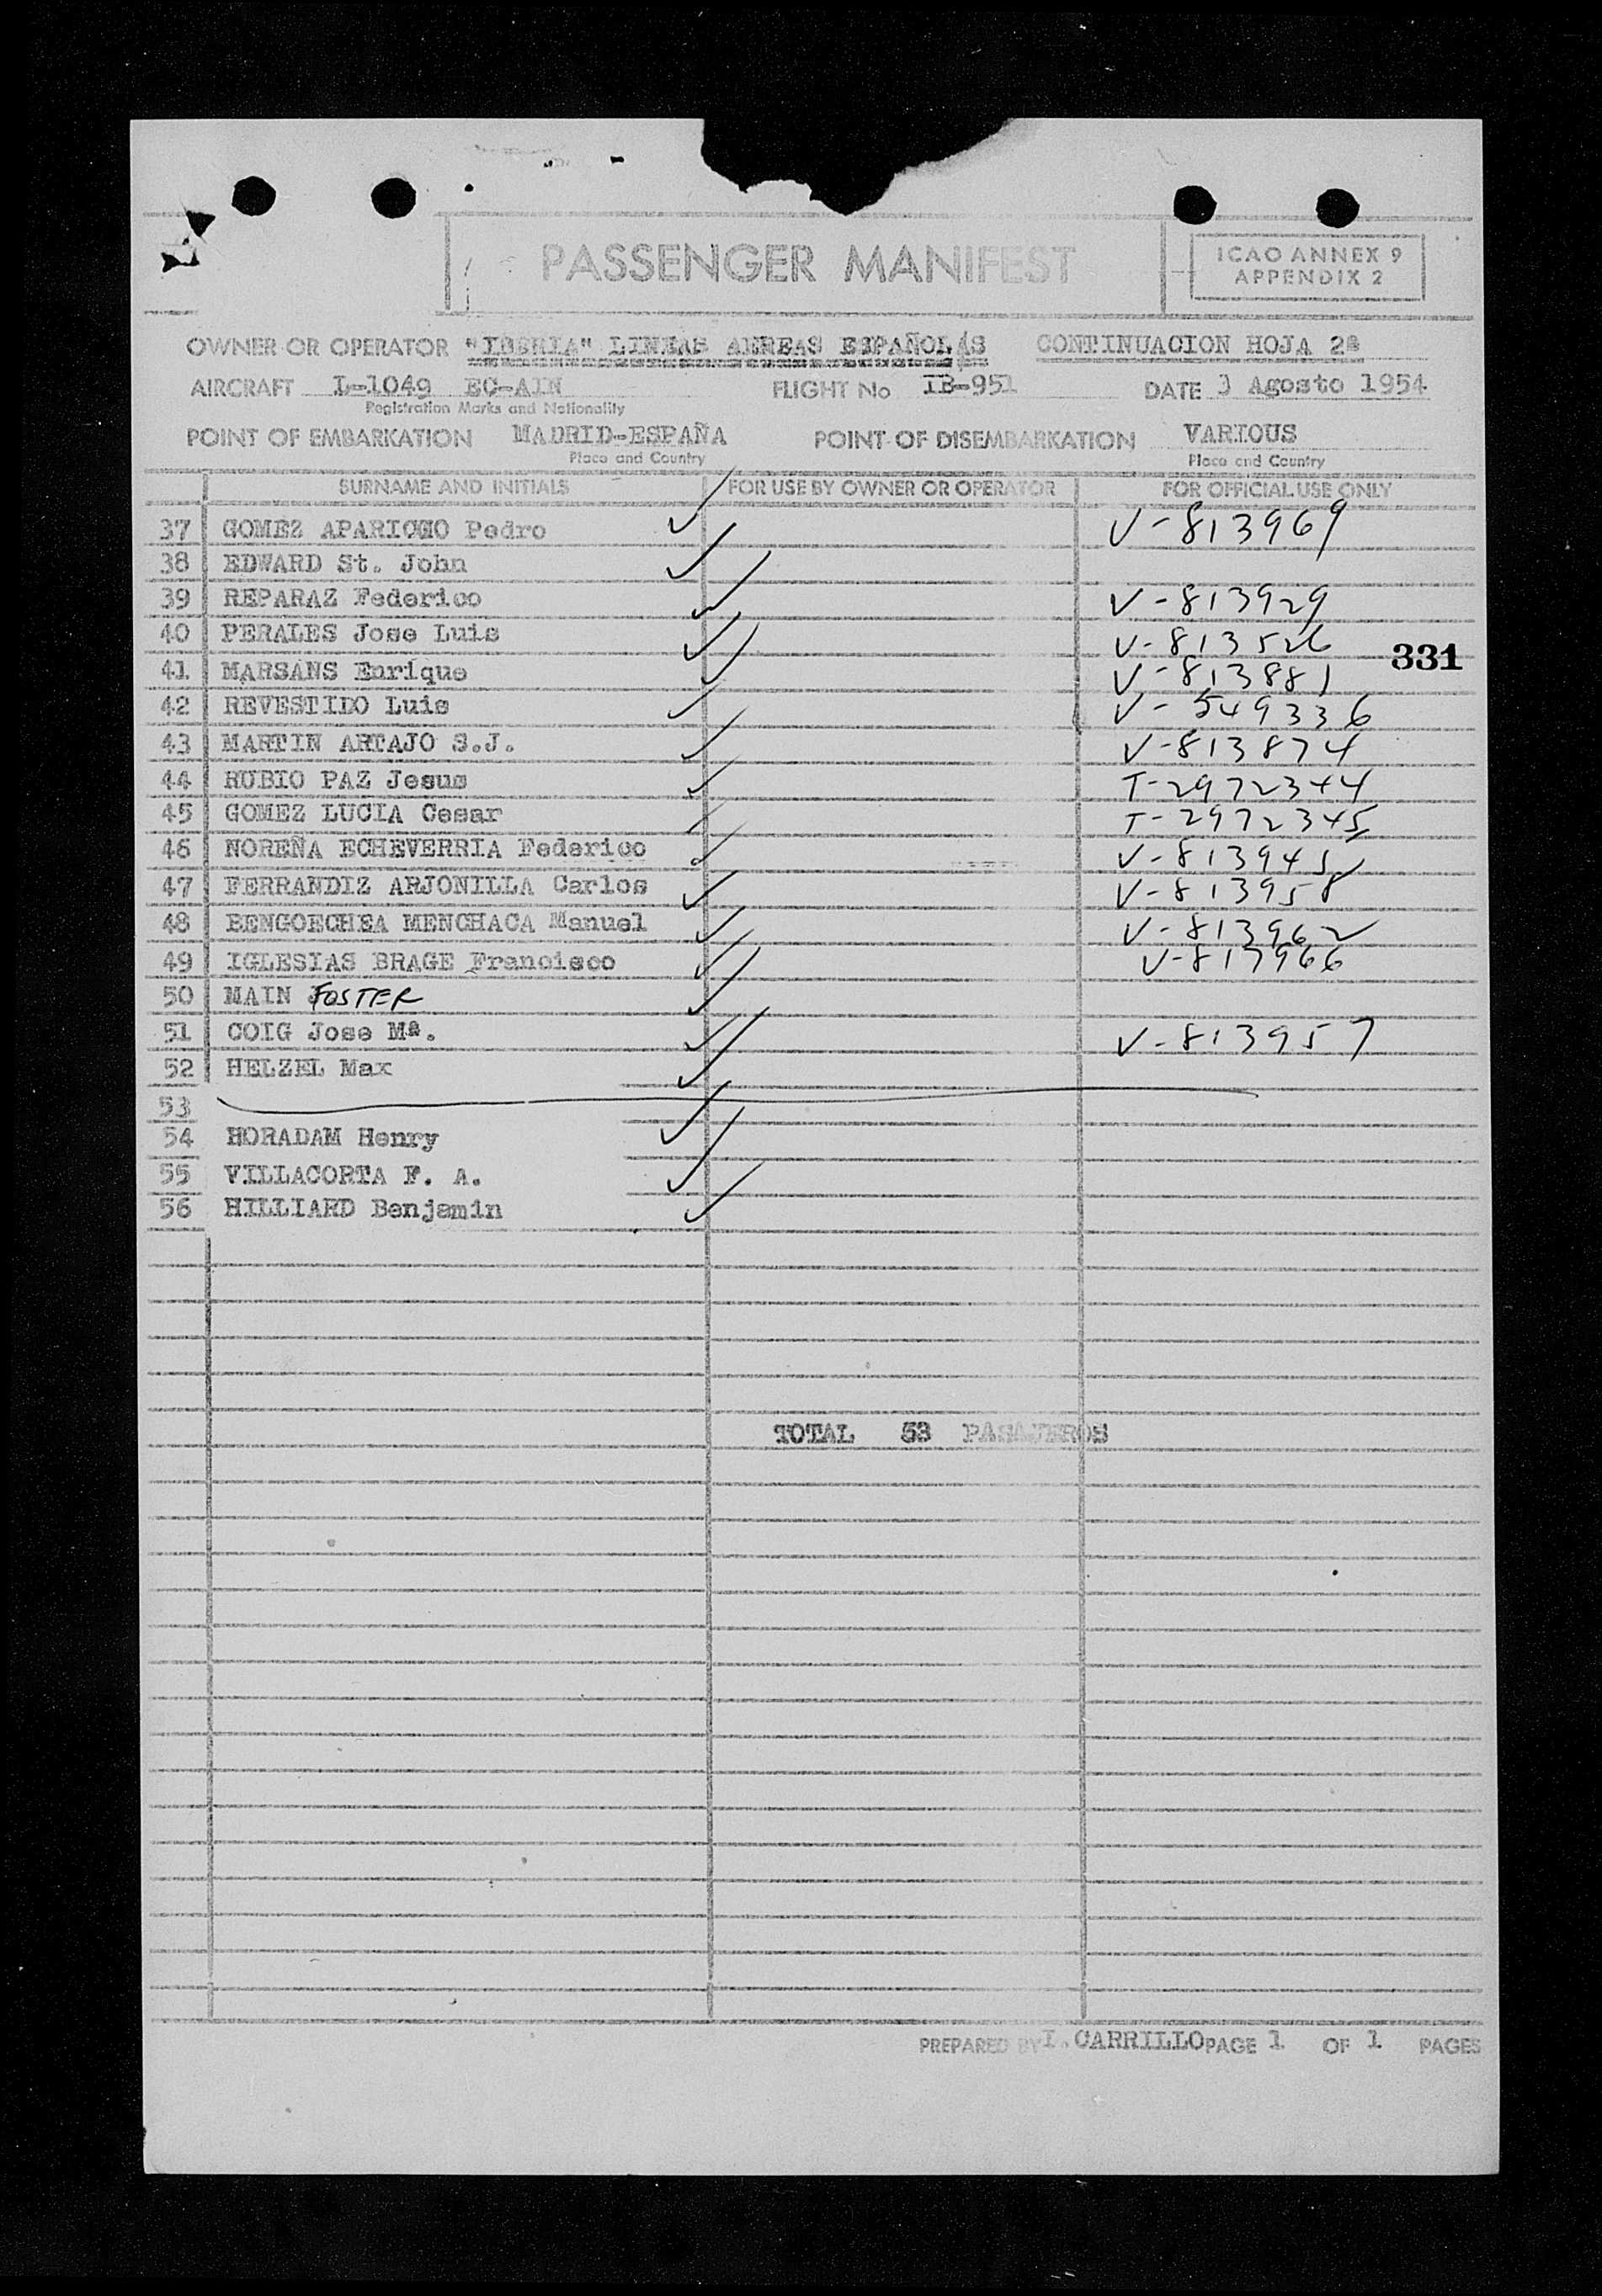 PASSENGER MANIFEST
ICAO ANNEX 9
APPENDIX 2
OWNER OR OPERATOR "IBERIA" LINEAS AEREAS ESPAÑOLAS CONTINUACION HOJA 2ª
AIRCRAFT L-1049 EC-AIN FLIGHT No IB-951 DATE 3 Agosto 1954
Registration Marks and Nationality
POINT OF EMBARKATION MADRID-ESPAÑA POINT OF DISEMBARKATION VARIOUS
Place and Country Place and Country
SURNAME AND INITIALS FOR USE BY OWNER OR OPERATOR FOR OFFICIAL USE ONLY
37 GOMEZ Pedro V-813969
38 EDWARD St. John
39 REPARAZ Federico V-813929
40 PERALES Jose Luis V-813526
331
41 MARSANS Enrique V-813881
42 REVESTIDO Luis V-549336
43 MARTIN ARTAJO S.J. V-813874
44 RUBIO PAZ Jesus T-2972344
45 GOMEZ LUCIA Cesar T-2972345
46 NOREÑA ECHEVERRIA Federico V-813945
47 FERRANDIZ ARJONILLA Carlos V-813958
48 BENGOECHEA MENCHACA Manuel V-813962
49 IGLESIAS BRAGE Francisco V-813966
50 MAIN FOSTER
51 COIG Jose Mª. V-813957
52 HELZEL Max
53
54 HORADAM Henry
55 VILLACORTA F. A.
56 HILLIARD Benjamin
TOTAL 53 PASAJEROS
PREPARED BY I. CARRILLO PAGE 1 OF 1 PAGES